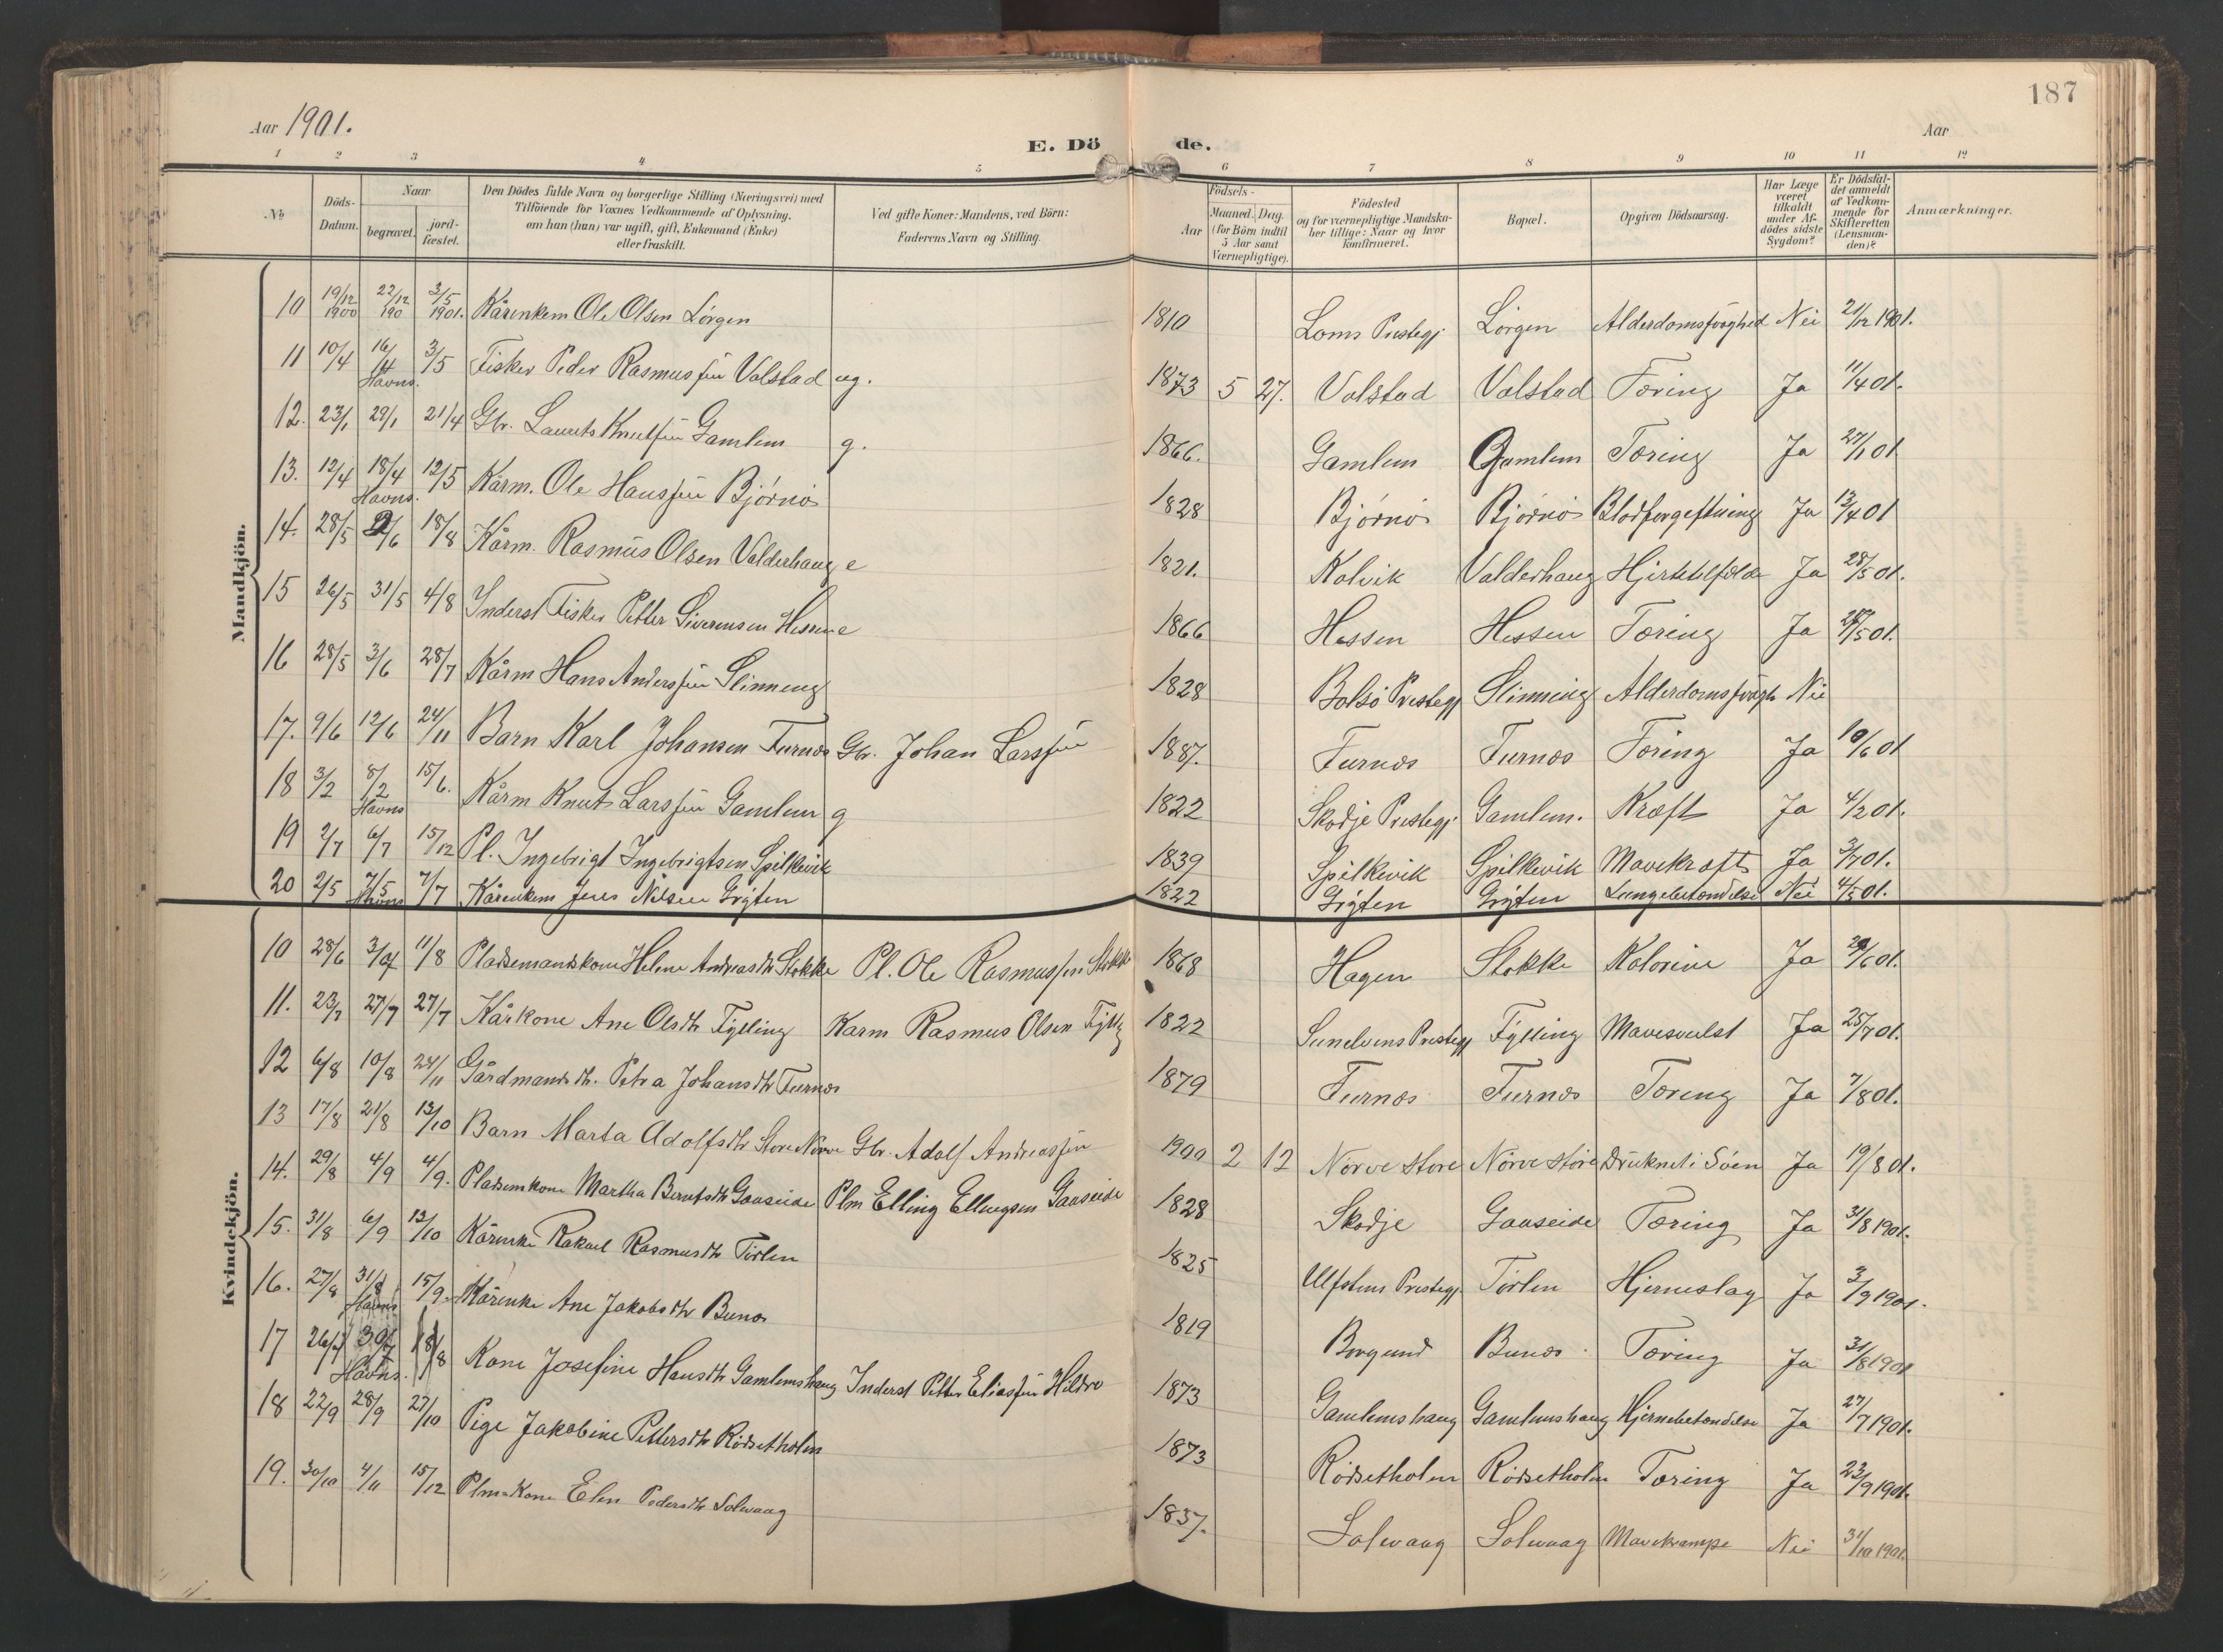 187
Aar 1901.
Aar
E. Dö de.
1 2 3 4 5 6 7 8 9 10 11 12
№
Döds-Datum.
Naar
begravet.
jord-fæstet.
Den Dödes fulde Navn og borgerlige Stilling (Næringsvei) med
Tilföiende for Voxnes Vedkommende af Oplysning.
om han (hun) var ugift, gift, Enkemand (Enke)
eller fraskilt.
Ved gifte Koner: Mandens, ved Börn:
Faderens Navn og Stilling.
Födsels-
Aar
Maaned. Dag.
(for Börn indtil
5 Aar samt
Værnepligtige).
Födested
og for værnepligtige Mandskaber tillige: Naar og hvor
konfirmeret.
Bopæl.
Opgiven Dödsaarsag.
Har Læge
været
tilkaldt
under Af-
dödes sidste
Sygdom?
Er Dödsfal-
det anmeldt
af Vedkom-
mende for
Skifteretten
(Lensman-
den)?
Anmærkninger.
Mandkjön.
10 19/12 1900 22/12 190 3/5 1901. Kårenkem Ole Olsen Lørgen 1810 Loms Prestegj Lørgen Nei 21/12 1901.
11 10/4 16/4 Havns. 3/5 Fisker Peder Rasmussen Valstad ug. 1873 5 27. Valstad Valstad Tæring Ja 11/4 01.
12. 23/1 29/1 21/4 Gbr. Laurits Knutsen Gamlem g. 1866. Gamlem Gamlem Tæring Ja 27/1 01
13. 12/4 18/4 Havns. 12/5 Kårm. Ole Hanssen Bjørnø 1828 Bjørnø Bjørnø Blodforgeftning Ja 13/4 01
14. 28/5 2/6 18/8 Kårm. Rasmus Olsen Valderhaug e 1821. Kalvik Valderhaug Ja 28/5 01.
15 26/5 31/5 4/8 Inderst Fisker Petter Hessen e 1866 Hessen Hessen Tæring Ja /5 01.
16 28/5 3/6 28/7 Kårm Hans Anderssen Slinneng 1828 Bolsø Prestegj Slinning Nei
17. 9/6 12/6 24/11 Barn Karl Johansen Furnes Gbr. Johan Larssen 1887. Furnes Furnes Tæring Ja 10/6 01
18 3/2 8/2 Havns 15/6. Kårm Knut Larssen Gamlem g 1822 Skodje Prestegj. Gamlem. Kræft Ja 4/2 01.
19 2/7 6/7 15/12 Pl. Ingebrigt Ingebrigtsen Spilkevik 1839 Spilkevik Spilkevik Mavekræft Ja 3/7 01.
20 2/5 7/5 Havns 7/7 Kårenkem Jens Nilsen Grytten 1822 Grytten Grytten Lungebetændelse Nei 4/5 01.
Kvindekjön.
10 28/6 3/7 11/8 Pladsemandskone Helene Andreasdtr Stokke Pl. Ole Rasmussen Stokke 1868 Hagen Stokke Kolorine Ja 29/6 01.
11. 23/7 27/7 27/7 Kårkone Ane Olsdtr Fylling Karm Rasmus Olsen 1822 Sunelvens Prestegj Fylling Mavesvulst Ja 25/7 01.
12 6/8 10/8 24/11 Gårdmandsdtr. Petra Johansdtr Furnes 1879 Furnes Furnes Tæring Ja 7/8 01.
13 17/8 21/8 13/10 Barn Marta Adolfsdtr Store Nørve Gbr. Adolf Andreassen 1900 2 12 Nørve store Nørve store Druknet i Søen Ja 19/8 01.
14. 29/8 4/9 4/9. Pladsemkone Martha Gaaseide Plm Elling Ellingsen Gaaseide 1828 Skodje Gaaseide Tæring Ja 31/8 1901.
15. 31/8 6/9 13/10 Kårenke Rakael Rasmusdtr Tørlen 1825 Ulfstens Prestegj. Tørlen Hjerneslag Ja 3/9 1901.
16. 27/8 31/8 Havns 15/9. Kårenke Ane Jakobsdtr Bunes 1819 Borgund Bunes Tæring Ja 31/8 1901
17 26/7 30/7 Havns. 18/8 Kone Josefine Hansdtr Gamlemshaug Inderst Petter Eliassen Hildre 1873 Gamlemshaug Gamlemshaug Hjernebetændelse Ja 27/7 1901.
18 22/9 28/9 27/10 Pige Jakobine Pettersdtr Rødsetholm 1873 Rødsetholm Rødsetholm Tæring Ja 23/9 1901.
19. 30/10 4/11 15/12 Plm=Kone Elen Pedersdtr Solevaag 1837. Solevaag Solevaag Mavekrampe Nei 31/10 1901.